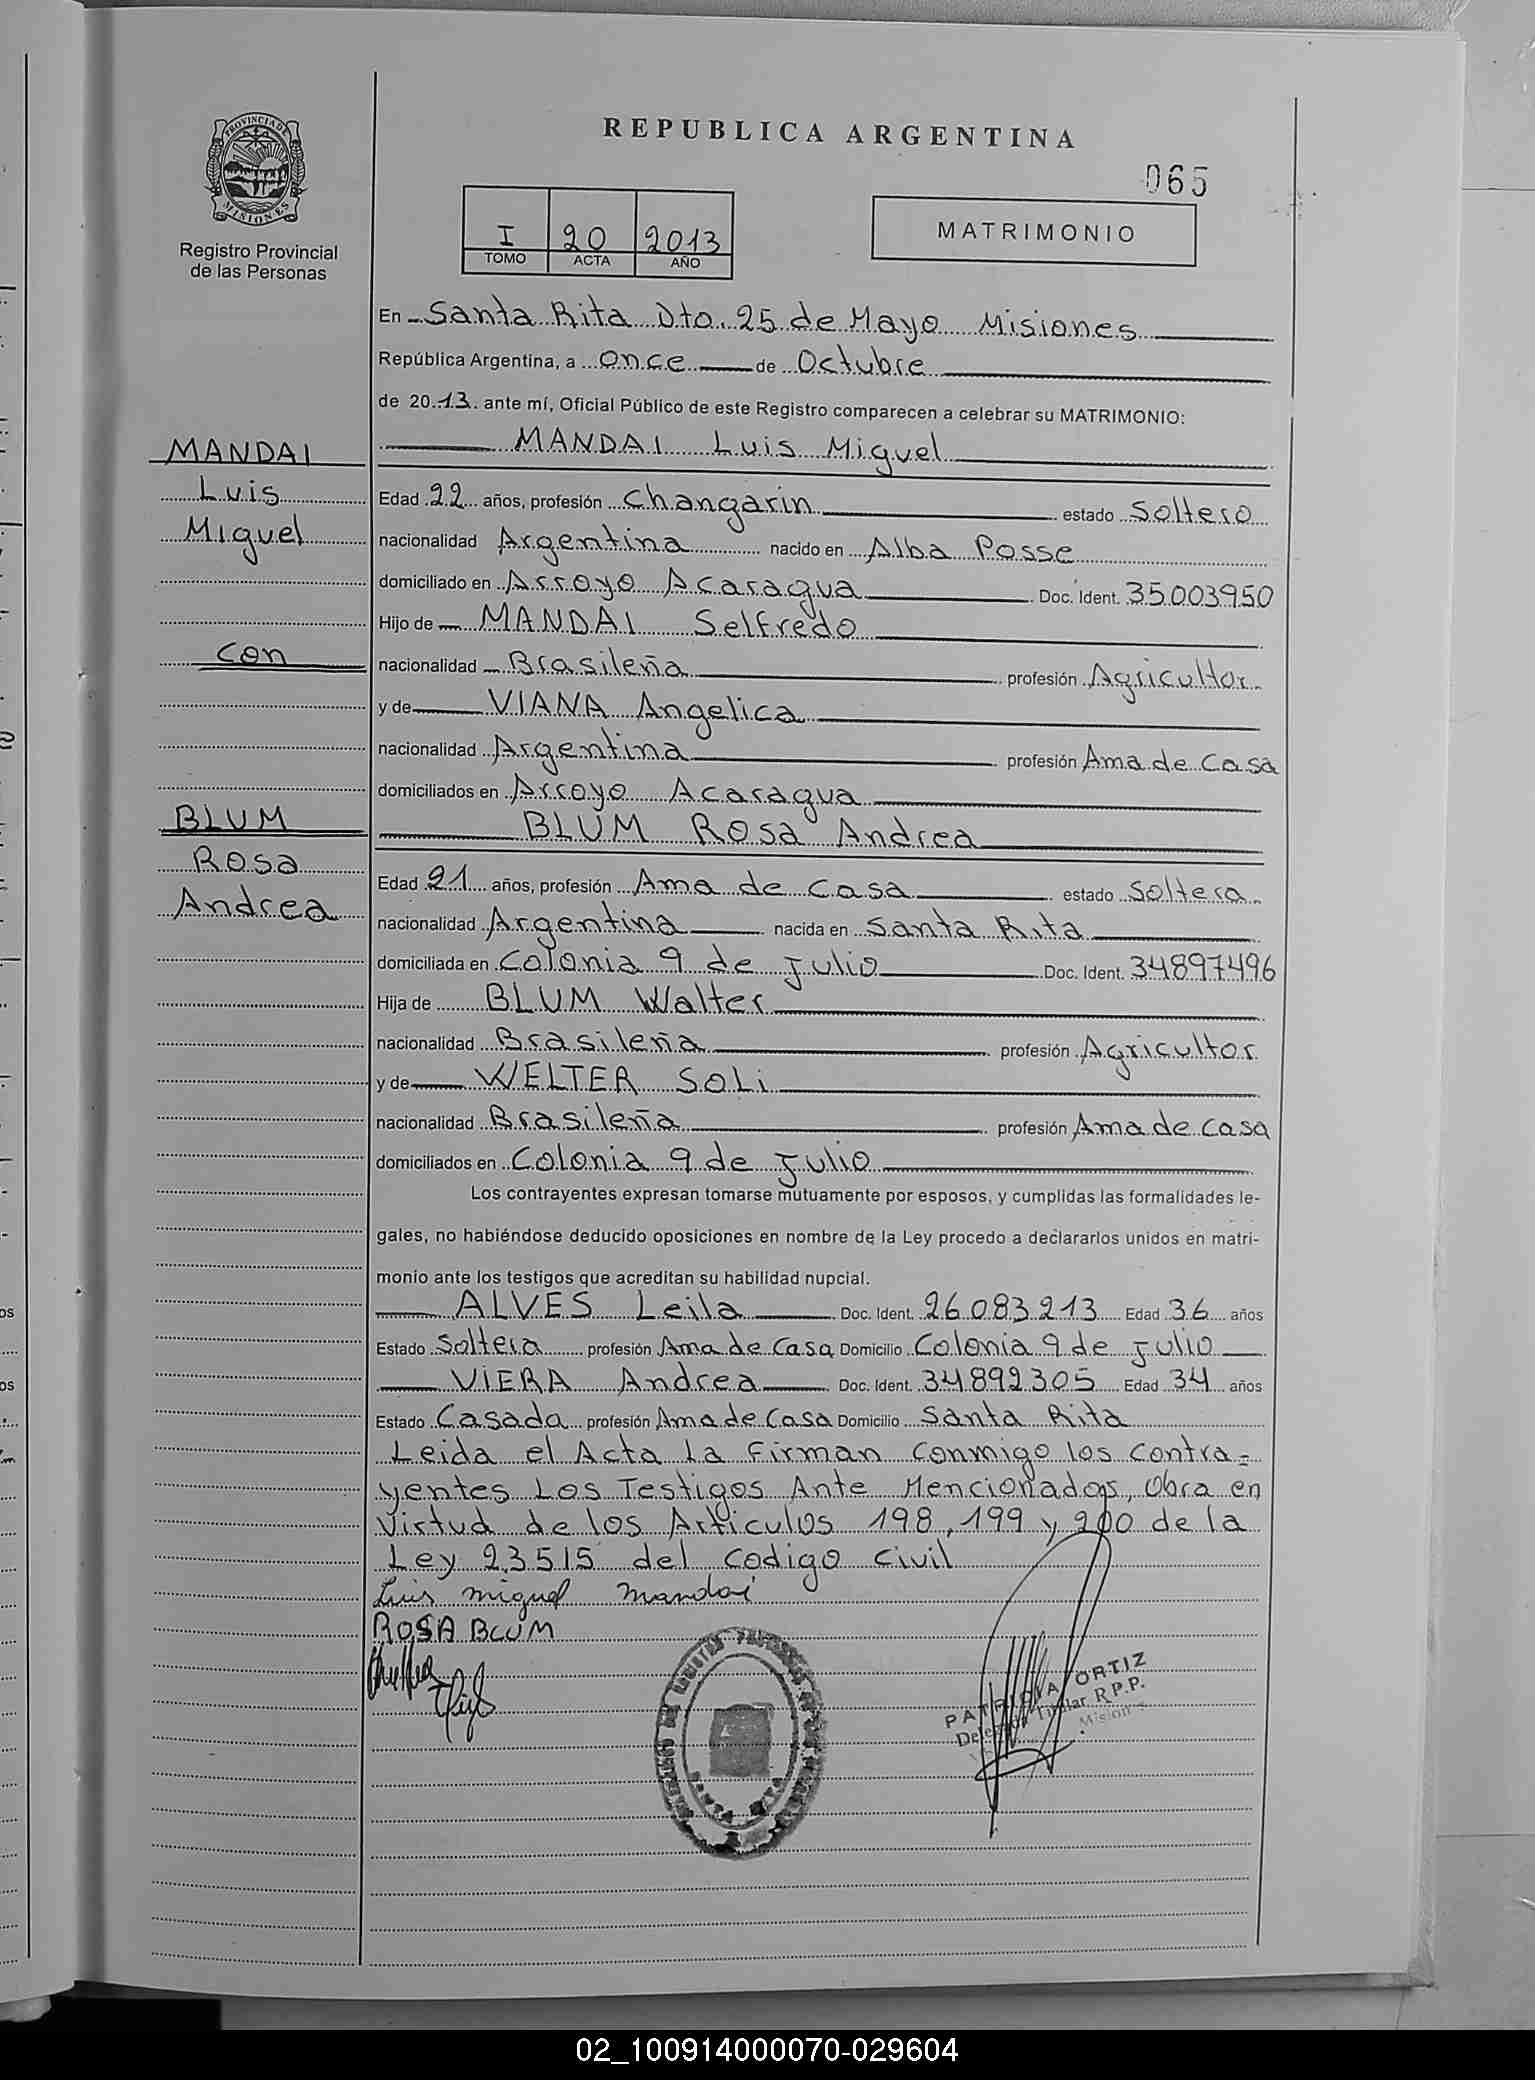 PROVINCIA DE
MISIONES
Registro Provincial
de las Personas
REPUBLICA ARGENTINA
065
I 20 2013
TOMO ACTA AÑO
MATRIMONIO
En Santa Rita Dto. 25 de Mayo Misiones
República Argentina, a once de Octubre
de 2013 ante mí, Oficial Público de este Registro comparecen a celebrar su MATRIMONIO:
MANDAI
Luis
Miguel
con
BLUM
Rosa
Andrea
MANDAI Luis Miguel
Edad 22 años, profesión Changarin estado Soltero
nacionalidad Argentina nacido en Alba Posse
domiciliado en Arroyo Acaragua Doc. Ident. 35003950
Hijo de MANDAI Selfredo
nacionalidad Brasileña profesión Agricultor
y de VIANA Angelica
nacionalidad Argentina profesión Ama de Casa
domiciliados en Arroyo Acaragua
BLUM Rosa Andrea
Edad 21 años, profesión Ama de Casa estado Soltera
nacionalidad Argentina nacida en Santa Rita
domiciliada en Colonia 9 de Julio Doc. Ident. 34897496
Hija de BLUM Walter
nacionalidad Brasileña profesión Agricultor
y de WELTER SOLi
nacionalidad Brasileña profesión Ama de Casa
domiciliados en Colonia 9 de Julio
Los contrayentes expresan tomarse mutuamente por esposos, y cumplidas las formalidades le-
gales, no habiéndose deducido oposiciones en nombre de la Ley procedo a declararlos unidos en matri-
monio ante los testigos que acreditan su habilidad nupcial.
ALVES Leila Doc. Ident. 26083213 Edad 36 años
Estado Soltera profesión Ama de Casa Domicilio Colonia 9 de Julio
VIERA Andrea Doc. Ident. 34892305 Edad 34 años
Estado Casada profesión Ama de Casa Domicilio Santa Rita
Leida el Acta La Firman conmigo los contra-
yentes Los Testigos Ante Mencionados, Obra en
Virtud de los Articulos 198, 199 y 200 de la
Ley 23515 del codigo civil
Luis miguel mandai
ROSA BLUM
SANTA RITA
PATRICIA ORTIZ
Delegada Titular R.P.P.
Misiones
02_100914000070-029604